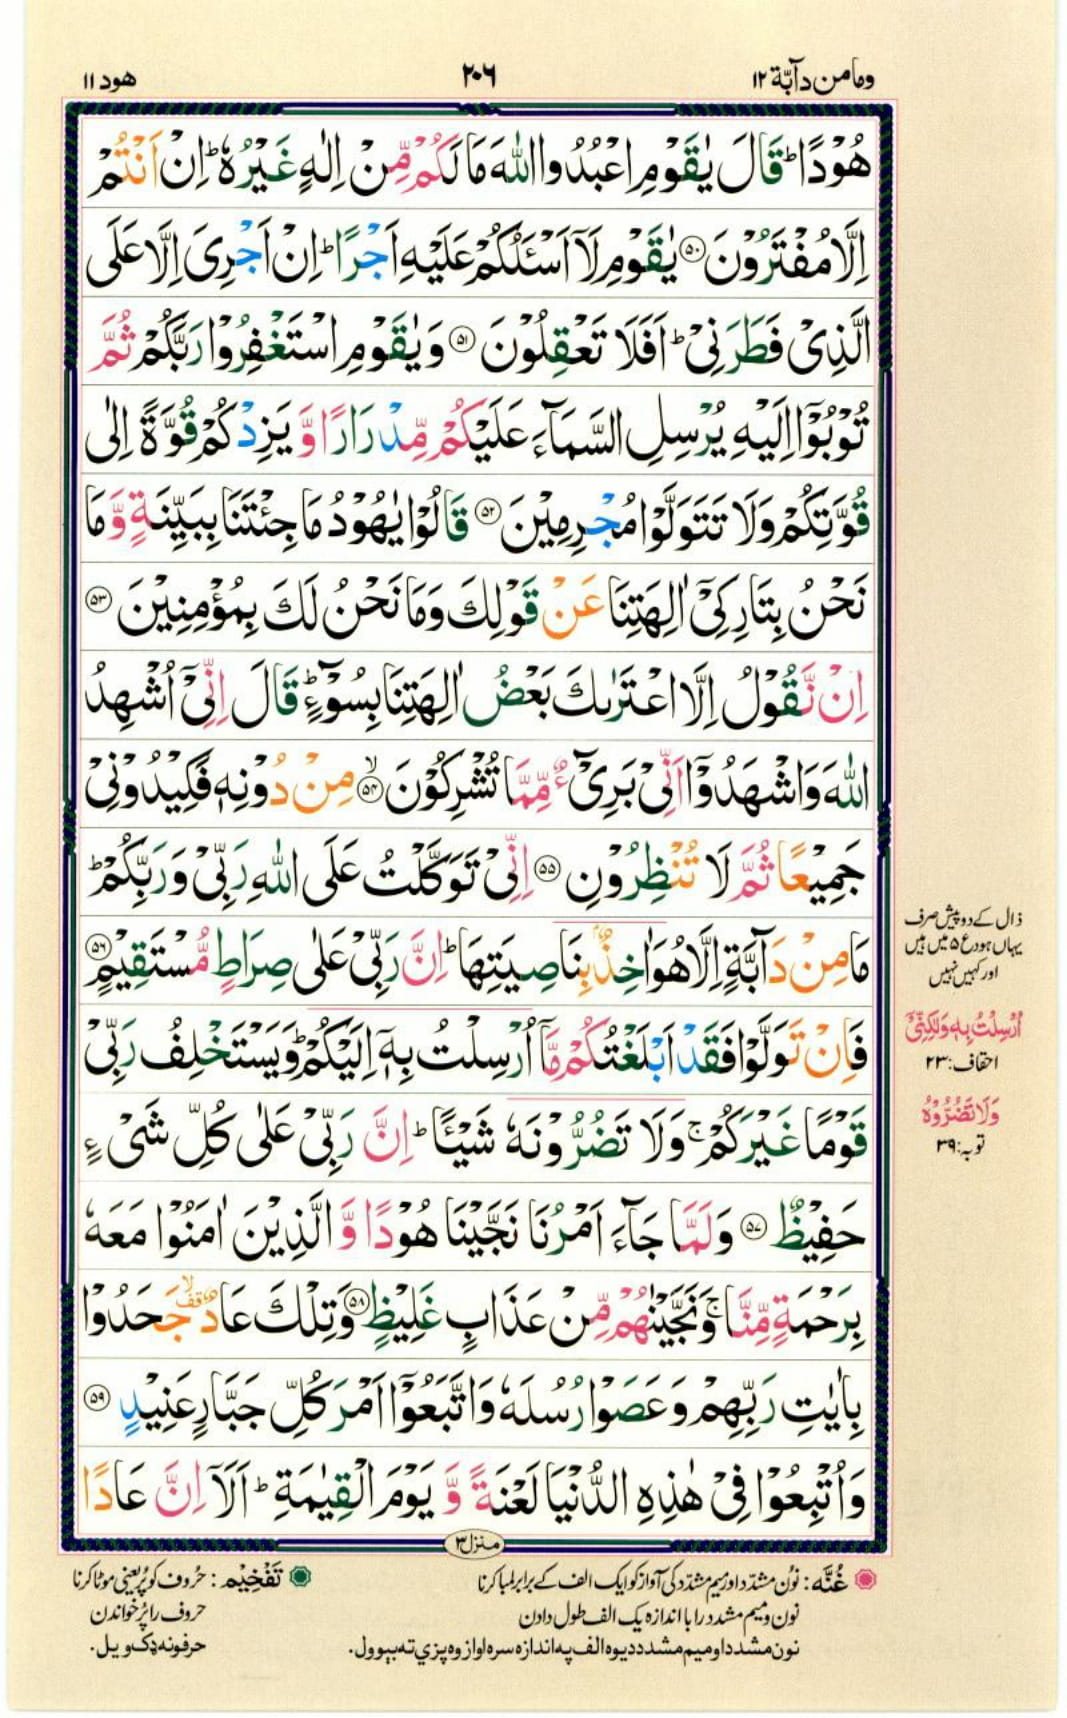 وما من دآبّة ۱۲
۲۰۶
هود ۱۱
هُوۡدًا ؕ قَالَ يٰقَوۡمِ اعۡبُدُوا اللّٰهَ مَا لَكُمۡ مِّنۡ اِلٰهٍ غَيۡرُهٗ ؕ اِنۡ اَنۡتُمۡ
اِلَّا مُفۡتَرُوۡنَ ﴿۵۰﴾ يٰقَوۡمِ لَاۤ اَسۡـَٔلُكُمۡ عَلَيۡهِ اَجۡرًا ؕ اِنۡ اَجۡرِىَ اِلَّا عَلَى
الَّذِىۡ فَطَرَنِىۡ ؕ اَفَلَا تَعۡقِلُوۡنَ ﴿۵۱﴾ وَيٰقَوۡمِ اسۡتَغۡفِرُوۡا رَبَّكُمۡ ثُمَّ
تُوۡبُوۡۤا اِلَيۡهِ يُرۡسِلِ السَّمَآءَ عَلَيۡكُمۡ مِّدۡرَارًا وَّيَزِدۡكُمۡ قُوَّةً اِلٰى
قُوَّتِكُمۡ وَلَا تَتَوَلَّوۡا مُجۡرِمِيۡنَ ﴿۵۲﴾ قَالُوۡا يٰهُوۡدُ مَا جِئۡتَنَا بِبَيِّنَةٍ وَّمَا
نَحۡنُ بِتَارِكِىۡۤ اٰلِهَتِنَا عَنۡ قَوۡلِكَ وَمَا نَحۡنُ لَكَ بِمُؤۡمِنِيۡنَ ﴿۵۳﴾
اِنۡ نَّقُوۡلُ اِلَّا اعۡتَرٰٮكَ بَعۡضُ اٰلِهَتِنَا بِسُوۡٓءٍ ؕ قَالَ اِنِّىۡۤ اُشۡهِدُ
اللّٰهَ وَاشۡهَدُوۡۤا اَنِّىۡ بَرِىۡٓءٌ مِّمَّا تُشۡرِكُوۡنَ ۙ﴿۵۴﴾ مِنۡ دُوۡنِهٖ فَكِيۡدُوۡنِىۡ
جَمِيۡعًا ثُمَّ لَا تُنۡظِرُوۡنِ ﴿۵۵﴾ اِنِّىۡ تَوَكَّلۡتُ عَلَى اللّٰهِ رَبِّىۡ وَرَبِّكُمۡ ؕ
مَا مِنۡ دَآبَّةٍ اِلَّا هُوَ اٰخِذٌۢ بِنَاصِيَتِهَا ؕ اِنَّ رَبِّىۡ عَلٰى صِرَاطٍ مُّسۡتَقِيۡمٍ ﴿۵۶﴾
فَاِنۡ تَوَلَّوۡا فَقَدۡ اَبۡلَغۡتُكُمۡ مَّاۤ اُرۡسِلۡتُ بِهٖۤ اِلَيۡكُمۡ ؕ وَيَسۡتَخۡلِفُ رَبِّىۡ
قَوۡمًا غَيۡرَكُمۡ ۚ وَلَا تَضُرُّوۡنَهٗ شَيۡـًٔا ؕ اِنَّ رَبِّىۡ عَلٰى كُلِّ شَىۡءٍ
حَفِيۡظٌ ﴿۵۷﴾ وَلَمَّا جَآءَ اَمۡرُنَا نَجَّيۡنَا هُوۡدًا وَّالَّذِيۡنَ اٰمَنُوۡا مَعَهٗ
بِرَحۡمَةٍ مِّنَّا ۚ وَنَجَّيۡنٰهُمۡ مِّنۡ عَذَابٍ غَلِيۡظٍ ﴿۵۸﴾ وَتِلۡكَ عَادٌ ۙ قف جَحَدُوۡا
بِاٰيٰتِ رَبِّهِمۡ وَعَصَوۡا رُسُلَهٗ وَاتَّبَعُوۡۤا اَمۡرَ كُلِّ جَبَّارٍ عَنِيۡدٍ ﴿۵۹﴾
وَاُتۡبِعُوۡا فِىۡ هٰذِهِ الدُّنۡيَا لَعۡنَةً وَّيَوۡمَ الۡقِيٰمَةِ ؕ اَلَاۤ اِنَّ عَادًا
ذال کے دو پیش صرف
یہاں ہود ع ۵ میں ہیں
اور کہیں نہیں
اُرۡسِلۡتُ بِهٖ وَلٰكِنِّىۡۤ
احقاف: ۲۳
وَلَا تَضُرُّوۡهُ
توبہ: ۳۹
منزل ۳
غُنَّه: نون مشدّد اور میم مشدّد کی آواز کو ایک الف کے برابر لمبا کرنا
نون و میم مشدد را با اندازه یک الف طول دادن
نون مشدد او میم مشدد د یوه الف په اندازه سره اواز وه پزې ته بېوول.
تَفۡخِیۡم: حُروف کو پُر یعنی موٹا کرنا
حروف را پُر خواندن
حرفونه ډک ویل.